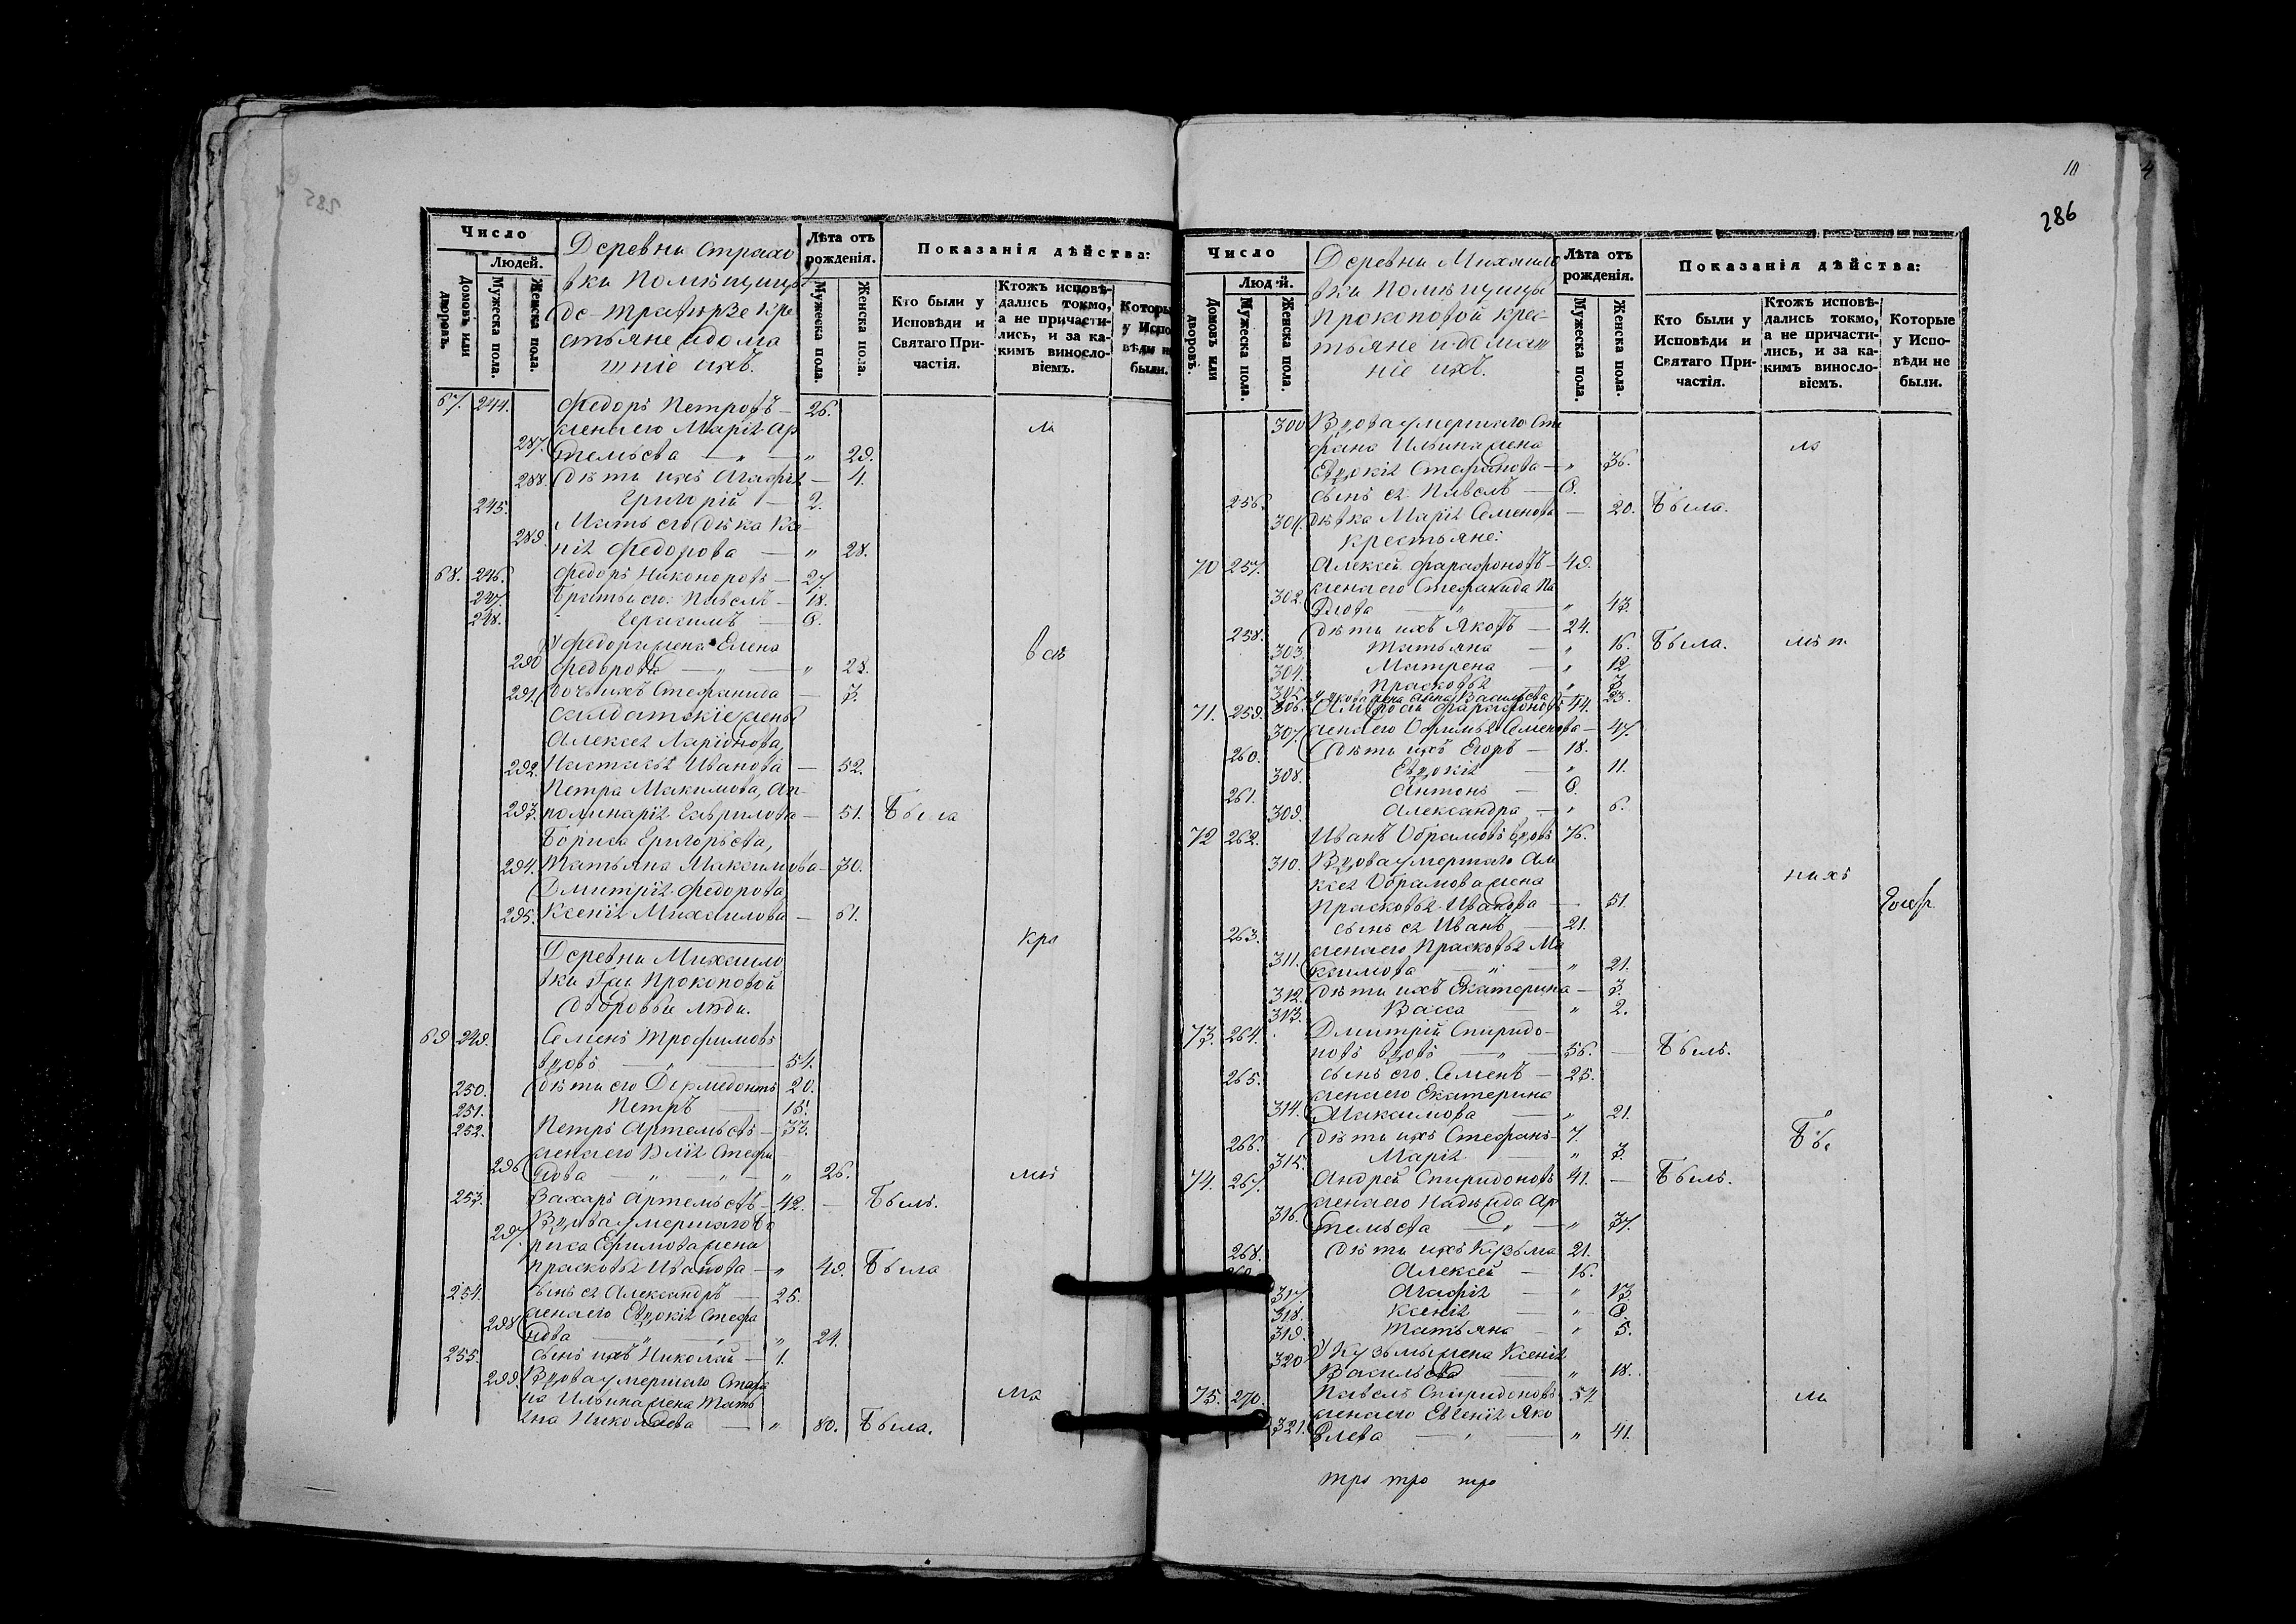 Число
Людей.
Домовъ или дворовъ.
Мужеска пола.
Женска пола.
Деревни Страхо
вки Помѣщицы
де-Траверзе Кре
стьяне идома
шніе ихъ.
Лѣта отъ рожденія.
Мужеска пола.
Женска пола.
Показанія дѣйства:
Кто были у Исповѣди и Святаго При-частія.
Ктожъ исповѣ-дались токмо, а не причасти-лись, и за ка-кимъ винословіемъ.
Которые у Испо-вѣди не были.
67. 244. Федоръ Петровъ — 26.
жена его Марія Ар
287. темьева — " — " 29.
288. дѣти ихъ Агафія — 4.
245. Григорій — 2.
289. нія Федорова — " 28.
68. 246. Федоръ Никоноровъ — 27.
247. Братья его: Павелъ — 18.
248. Герасимъ — 9.
У Федора жена Елена
290 Федорова — " — " 22.
291. дочь ихъ Стефанида — 3.
Салдатскіе жены
Алексея Ларіонова,
292. Настасья Иванова — 52.
Петра Макимова, Ап-
293. полинарія Гаврилова — 51. Была
Бориса Григорьева,
294. Татьяна Максимова — 30.
Дмитрія Федорова
295. Ксенія Михаилова — 61.
Деревни Михаило
вки Гжи Прокоповой
дворовыя люди.
69 249. Семенъ Трофимовъ
вдовъ — " — 54.
250. дѣти его Дермедонтъ 20.
251. Петръ — 15.
252. Петръ Артемьевъ — 33.
жена его Юлія Стефа
296. нова — " — " — " 26.
253. Захаръ Артемьевъ — 42. — Былъ.
297. Вдова умершаго Бо
риса Ефимова жена
Прасковья Иванова — " 49. Была
254. Сынъ ея Александръ — 25.
жена его Евдокія Стефа
298 нова — " — " — " 24.
255. Сынъ ихъ Николай — 1.
299. Вдова умершаго Стефа
на Ильина жена Тать
яна Николаева — " 80. Была.
10
286
Число
Людей.
Домовъ или дворовъ.
Мужеска пола.
Женска пола.
Деревни Михаило
вки Помѣщицы
Прокоповой Крес-
тьяне и домаш
ніе ихъ.
Лѣта отъ рожденія.
Мужеска пола.
Женска пола.
Показанія дѣйства:
Кто были у Исповѣди и Святаго При-частія.
Ктожъ исповѣ-дались токмо, а не причасти-лись, и за ка-кимъ винословіемъ.
Которые у Испо-вѣди не были.
300 Вдова умершаго Сте
фана Ильина жена
Евдокія Стефанова — " 36.
256. Сынъ ея Павелъ — 9.
301. дѣвка Марія Семенова — 20. Была.
Крестьяне:
70 257. Алексей Фарафоновъ — 49.
жена его Стефанида Па
302. влова — " — " 43.
258. дѣти ихъ Яковъ — 24.
303. Татьяна — " 16. Была.
304. Матрена — " 12
305. Прасковья " 3
306. У Якова жена Анна Васильева — 23.
71. 259. Амвросій Фарафоновъ 44.
307. жена его Офимья Семенова — 47.
260. дѣти ихъ Егоръ — 18.
308. Евдокія — " 11.
261. Антонъ — 9.
309. Александра — " 6.
72 262. Иванъ Обрамовъ вдовъ 76.
310. Вдова умершаго Але
ксея Обрамова жена
Прасковья Иванова — 51.
263. сынъ ея Иванъ — 21.
жена его Прасковья Ма
311. ксимова — " — " 21.
312. дѣти ихъ Екатерина — 3.
313. Васса — " 2.
73. 264. Дмитрій Спиридо-
новъ вдовъ — " — 56. — Былъ.
265. сынъ его Семенъ — 25.
жена его Екатерина
314. Макимова — " 21.
266. дѣти ихъ Стефанъ — 7.
315. Марія — " 3.
74. 267. Андрей Спиридоновъ 41. — Былъ.
жена его Надежда Ар
316. темьева — " — " 37.
268. дѣти ихъ Кузьма 21.
Алексей — 16.
317. Агафія — " 13
318. Ксенія — " 9.
319. Татьяна — " 5.
320 У Кузьмы жена Ксенія
Васильева — " 18.
75. 270. Павелъ Спиридоновъ 54.
жена его Евгенія Яко
321. влева — " — " 41.
тро тро тро